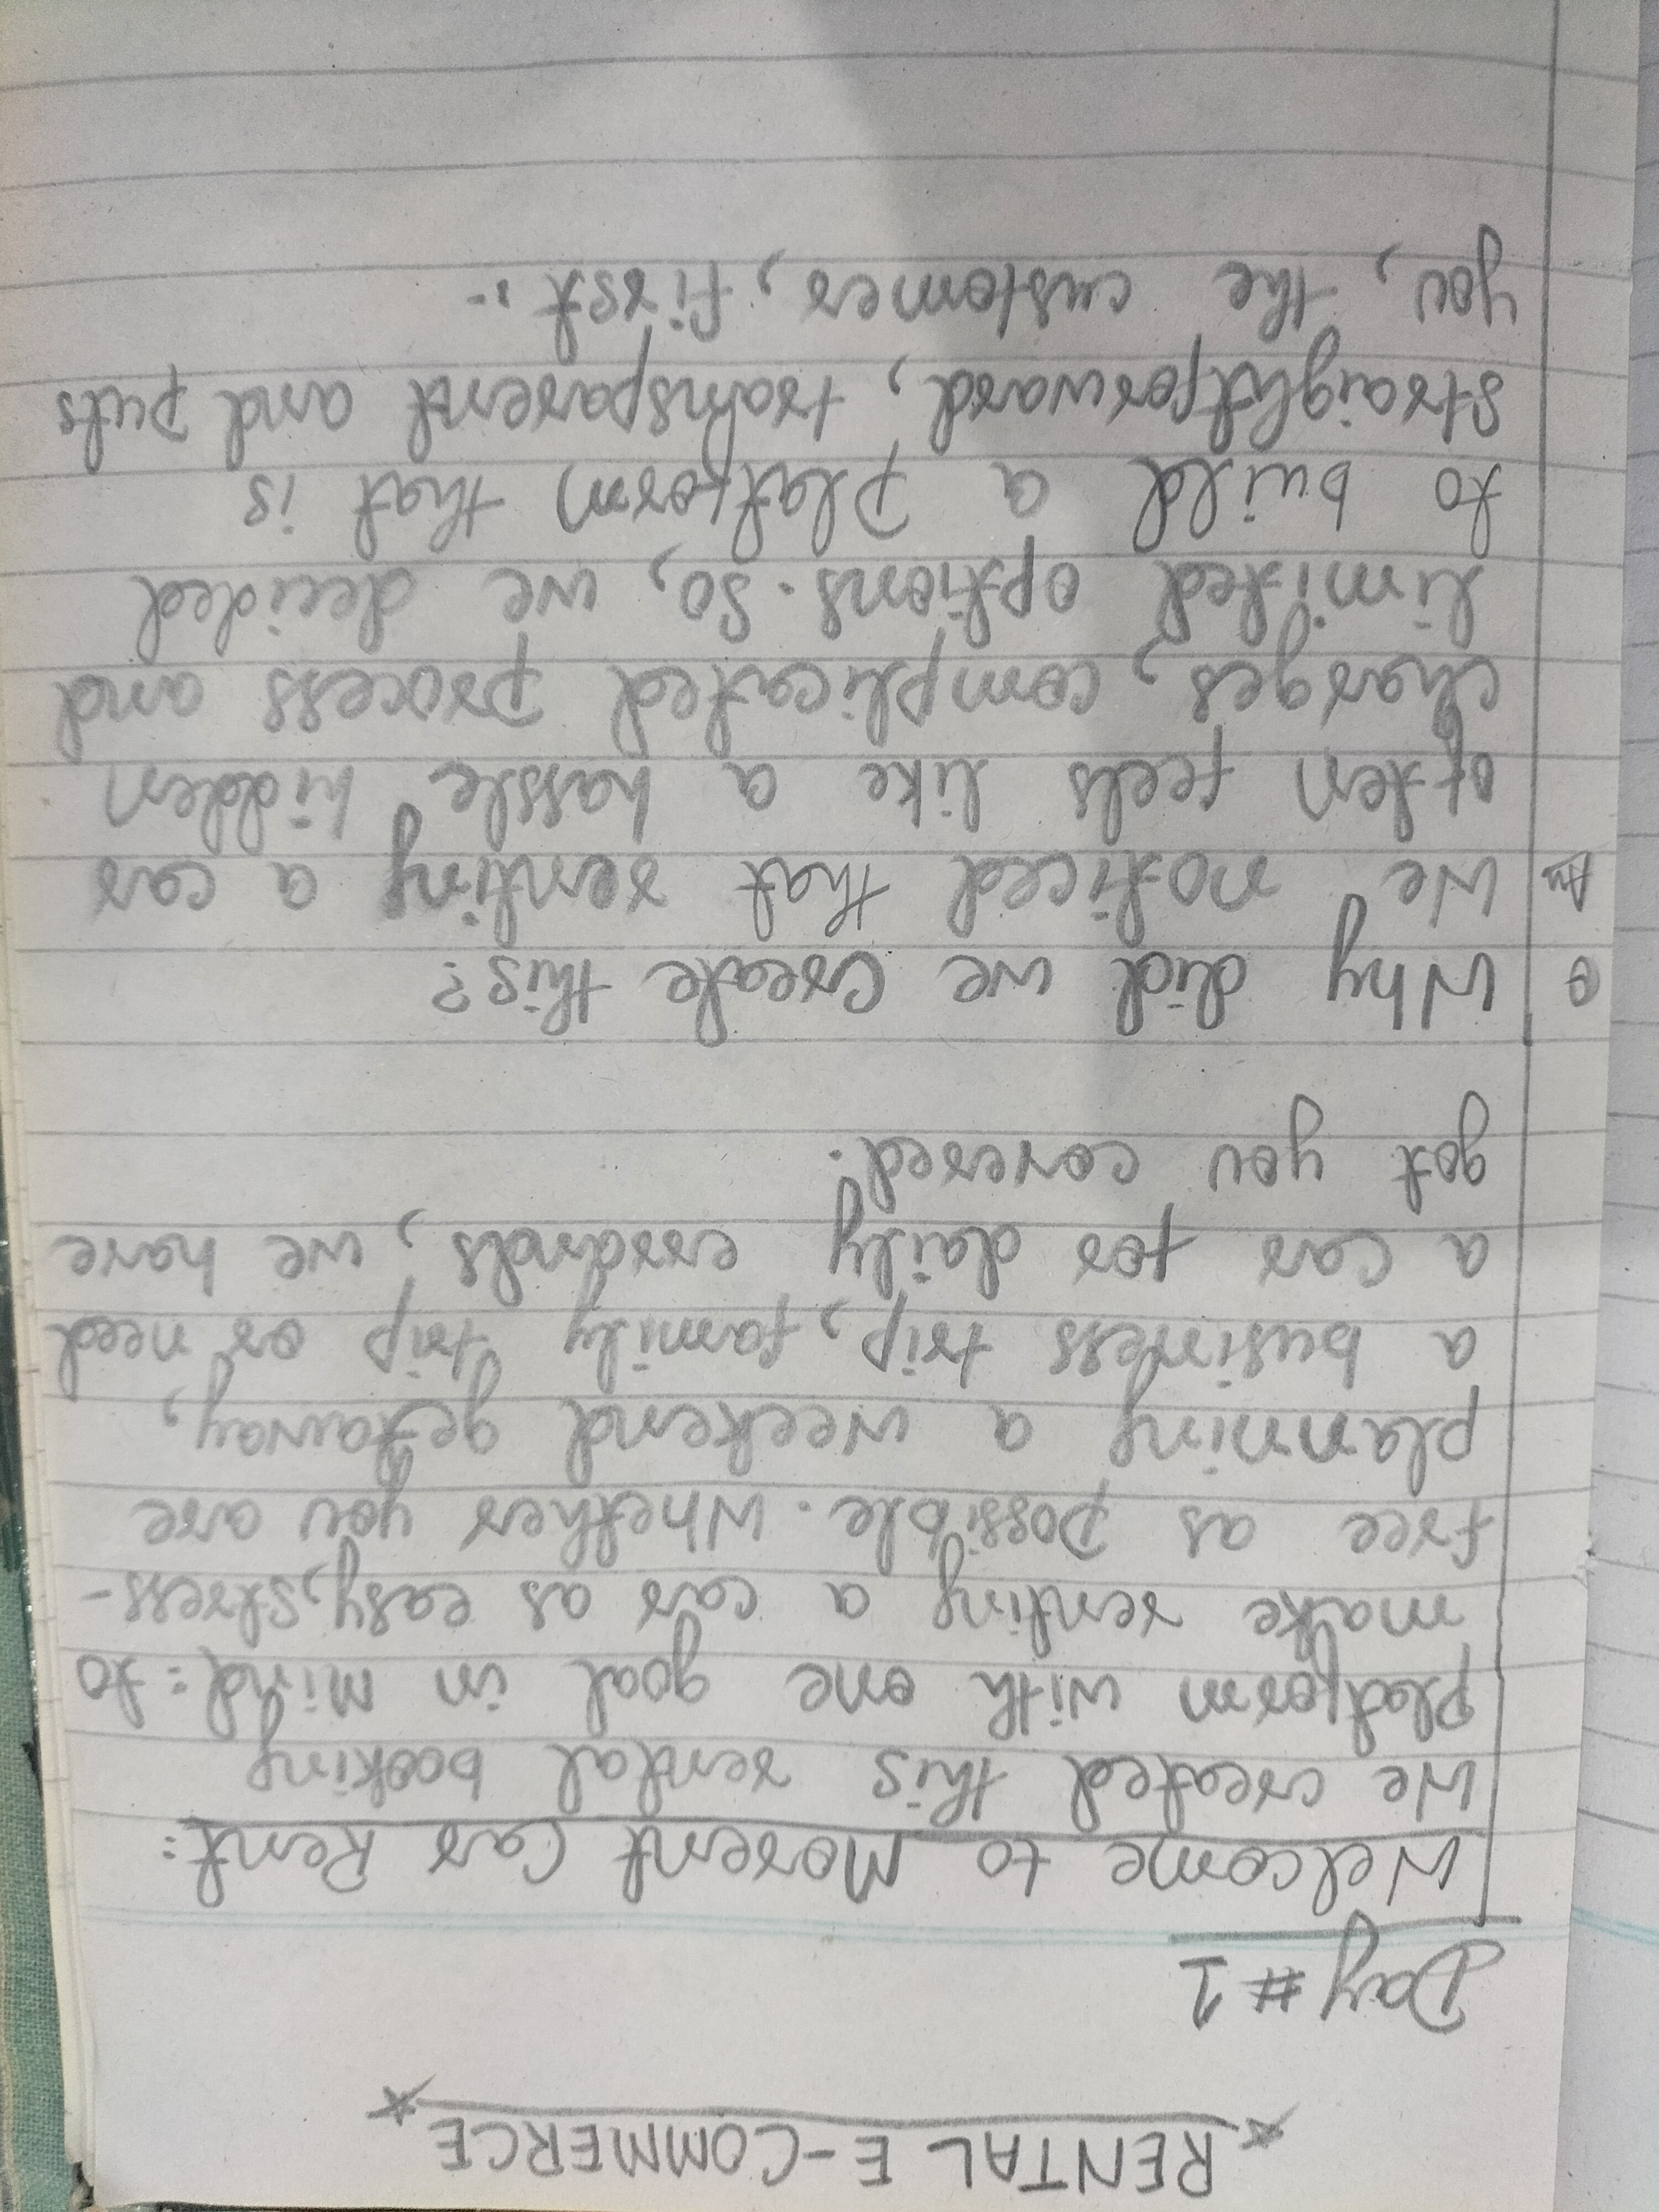 RENTAL E-COMMERCE
Day # 1
Welcome to Morent Car Rent:
We created this rental booking
platform with one goal in Mind: to
make renting a car as easy, stress-
free as possible. Whether you are
planning a weekend getaway,
a business trip, family trip or need
a car for daily errands, we have
got you covered.
Q Why did we create this?
Ans We noticed that renting a car
often feels like a hassle hidden
charges, complicated process and
limited options. So, we decided
to build a platform that is
straightforward, transparent and puts
you, the customer, first.-